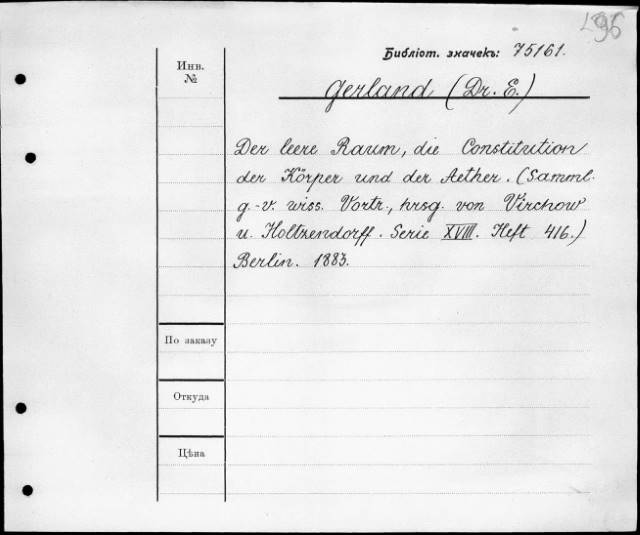 496
Библіот. значекъ: 75161.
Инв.
№
Gerland (Dr. E.)
Der leere Raum, die Constitution
der Körper und der Aether. (Samml.
g.-v. wiss. Vortr., hrsg. von Virchow
u. Holtzendorff. Serie XVIII. Heft 416.)
Berlin. 1883.
По заказу
Откуда
Цѣна